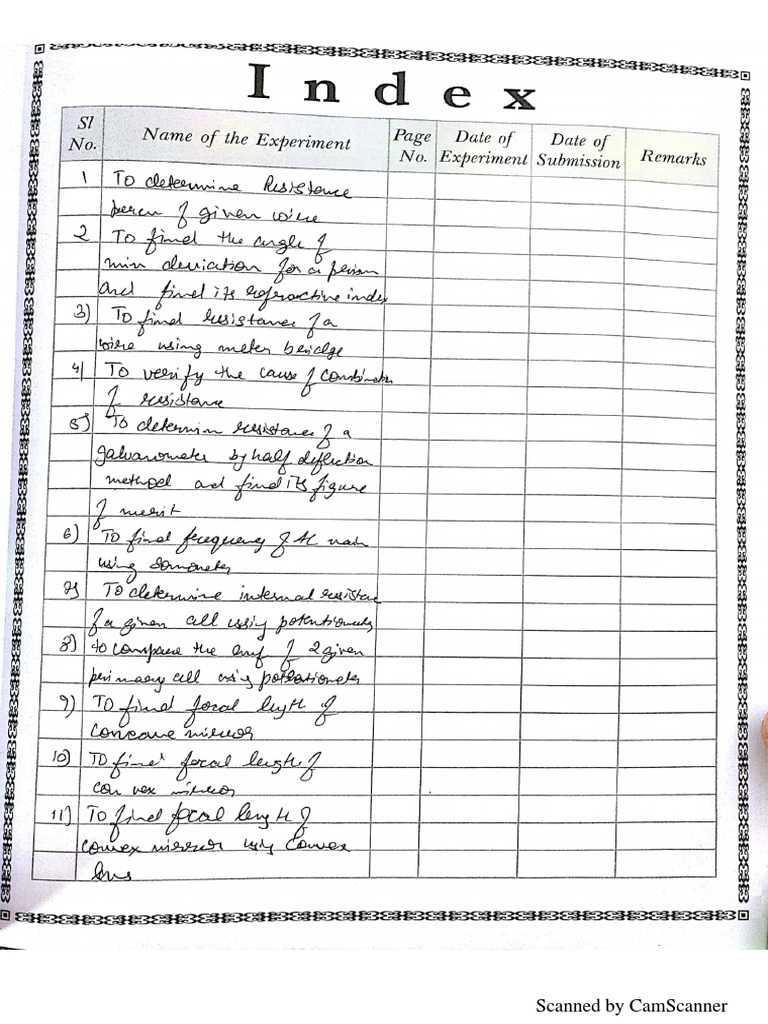 Index
Sl No. Name of the Experiment Page No. Date of Experiment Date of Submission Remarks
1 To determine Resistance
per cm of given wire
2 To find the angle of
min deviation for a prism
and find its refractive index
3) To find resistance of a
wire using meter bridge
4) To verify the cause of combinatn
of resistance
5) To determin resistance of a
galvanometer by half deflection
method and find its figure
of merit
6) To find frequency of AC main
using sonometer
7) To determine internal resistane
of a given cell using potentiometer
8) to compare the emf of 2 given
primary cell using potentiometer
9) To find focal length of
concave mirror
10) To find focal length of
convex mirror
11) To find focal length of
convex mirror using convex
lens
Scanned by CamScanner